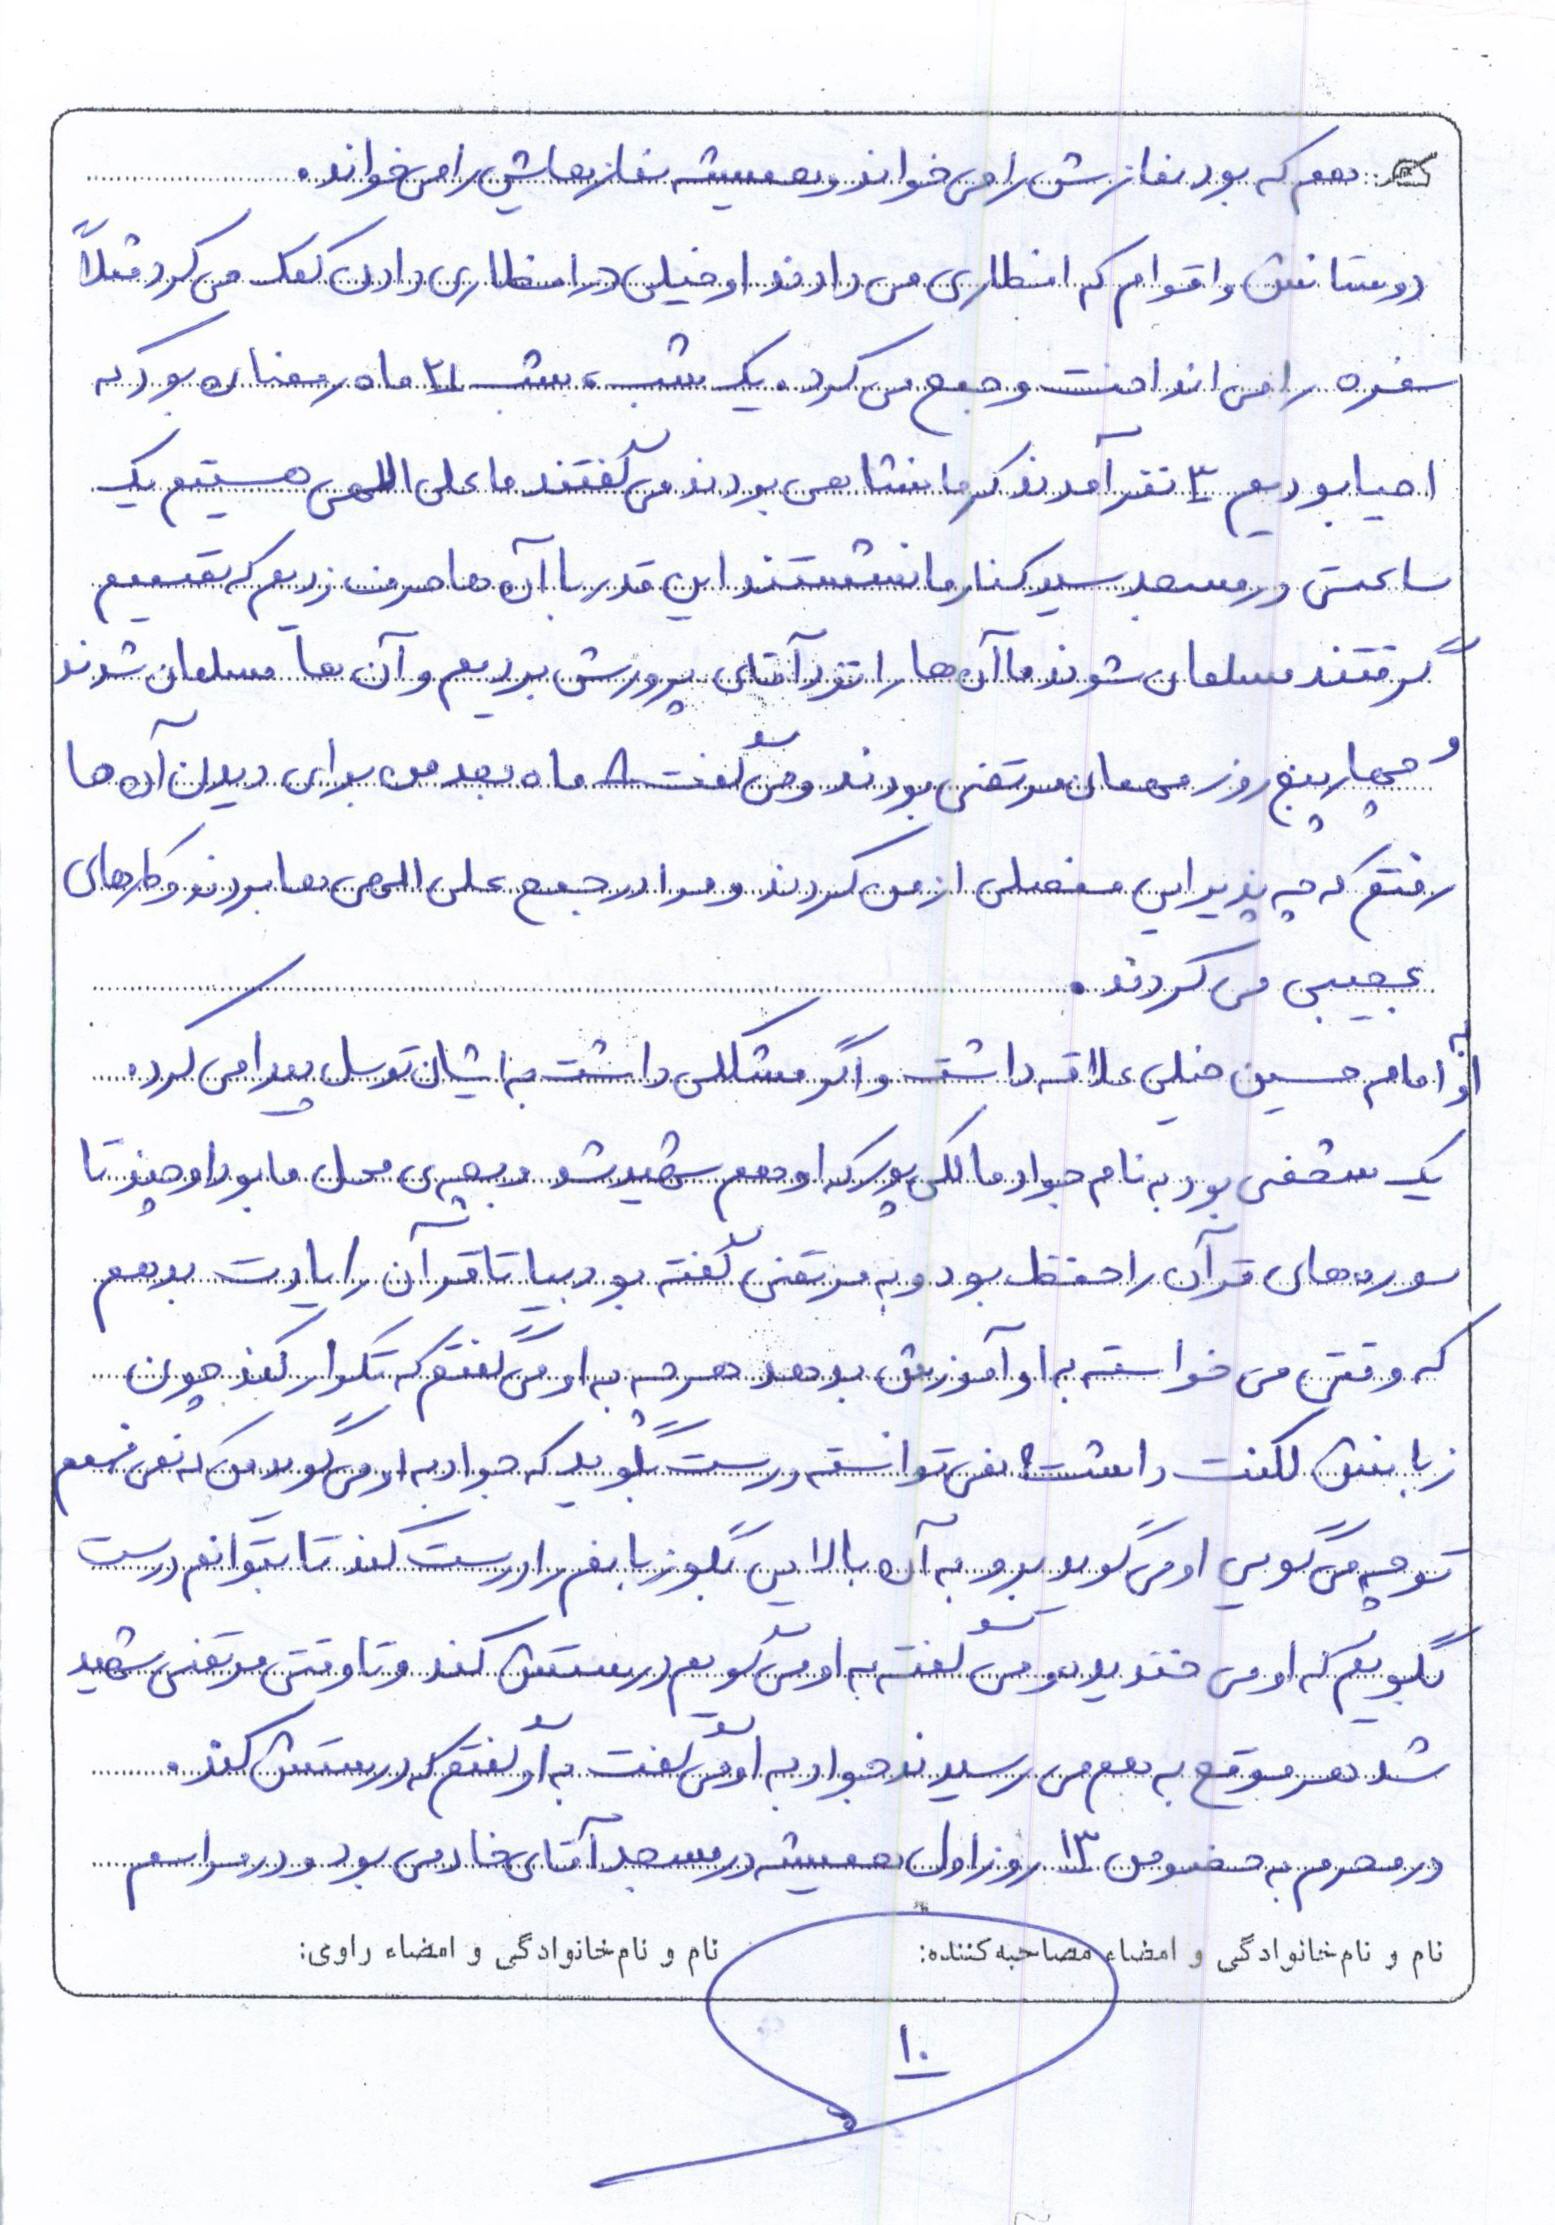 هم که بود نمازش را می خواند و همیشه نمازهایش را می خواند.
دوستانش و اقوام که افطاری می دادند او خیلی در افطاری دادن کمک می کرد مثلاً
سفره را می انداخت و جمع می کرد. یک شب، شب ۲۱ ماه رمضان بود که
احیا بودیم ۳ نفر آمدند کرمانشاهی بودند می گفتند ما علی اللهی هستیم یک
ساعتی در مسجد سید کنار ما نشستند این قدر با آن ها حرف زدیم که تصمیم
گرفتند مسلمان شوند ما آن ها را نزد آقای پرورش بردیم و آن ها مسلمان شدند
و چهار پنج روز مهمان مرتضی بودند و می گفت ۸ ماه بعد من برای دیدن آن ها
رفتم که چه پذیرایی مفصلی از من کردند و مرا در جمع علی اللهی ها بردند و کارهای
عجیبی می کردند.
او به امام حسین خیلی علاقه داشت و اگر مشکلی داشت به ایشان توسل پیدا می کرد.
یک شخصی بود به نام جواد مالکی پور که او هم شهید شد و بچه ی محل ما بود او چند تا
سوره های قرآن را حفظ بود و به مرتضی گفته بود بیا تا قرآن را یادت بدهم
که وقتی می خواسته به او آموزش بدهد هر چه به او می گفتم که تکرار کند چون
زبانش لکنت داشت نمی توانسته درست بگوید که جواد به او می گوید من که نمی فهمم
تو چه می گویی او می گوید برو به آن بالایی بگو زبانم را درست کند تا بتوانم درست
بگویم که او می خندید و می گفته به او می گویم درستش کند و تا وقتی مرتضی شهید
شد هر موقع به هم می رسیدند جواد به او می گفت به او گفتم که درستش کند.
در محرم به خصوص ۱۳ روز اول همیشه در مسجد آقای خادمی بود و در مراسم
نام و نام خانوادگی و امضاء مصاحبه کننده: نام و نام خانوادگی و امضاء راوی:
۱۰